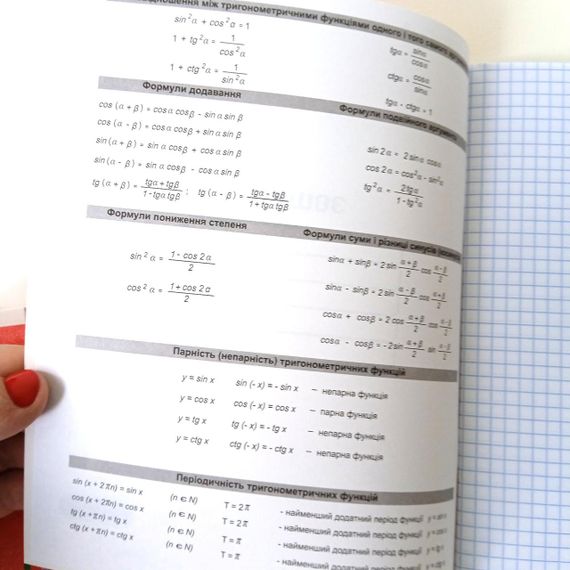 між тригонометричними функціями одного і того самого
sin²α + cos²α = 1
1 + tg²α = 1/cos²α
1 + ctg²α = 1/sin²α
tgα = sinα/cosα
ctgα = cosα/sinα
tgα - ctgα = 1
Формули додавання
cos (α + β) = cosα cosβ - sinα sin β
cos (α - β) = cosα cosβ + sinα sin β
sin(α + β) = sinα cosβ + cosα sin β
sin(α - β) = sinα cosβ - cosα sin β
tg (α + β) = tgα + tgβ/1 - tgα tgβ ; tg (α - β) = tgα - tgβ/1 + tgα tgβ
Формули подвійного
sin 2α = 2sinα cosα
cos 2α = cos²α - sin²α
tg²α = 2tgα/1 - tg²α
Формули пониження степеня
sin²α = 1 - cos 2α/2
cos²α = 1 + cos 2α/2
Формули суми і різниці синусів
sinα + sinβ = 2sin α + β/2 cos α - β/2
sinα - sinβ = 2sin α - β/2 cos α + β/2
cosα + cosβ = 2cos α + β/2 cos α - β/2
cosα - cosβ = -2sin α + β/2 sin α - β/2
Парність (непарність) тригонометричних функцій
y = sin x sin (- x) = - sin x – непарна функція
y = cos x cos (- x) = cos x – парна функція
y = tg x tg (- x) = - tg x – непарна функція
y = ctg x ctg (- x) = - ctg x – непарна функція
Періодичність тригонометричних функцій
sin (x + 2πn) = sin x (n ∈ N) T = 2π - найменший додатний період функції y = sin x
cos (x + 2πn) = cos x (n ∈ N) T = 2π - найменший додатний період функції y = cos x
tg (x + πn) = tg x (n ∈ N) T = π - найменший додатний період функції y = tg x
ctg (x + πn) = ctg x (n ∈ N) T = π - найменший додатний період функції